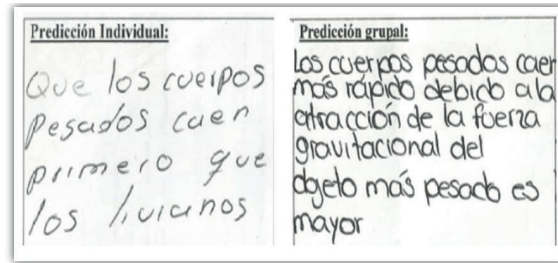 Predicción Individual:
Que los cuerpos
Pesados caen
primero que
los livianos
Predicción grupal:
Los cuerpos pesados caen
más rápido debido a la
atracción de la fuerza
gravitacional del
objeto más pesado es
mayor